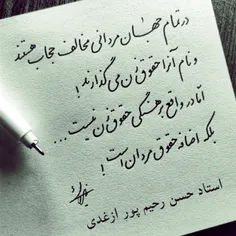 در تمام جهان مردانی مخالف حجاب هستند
و نام آنرا حقوق زن می گذارند!
اما در واقع برهنگی حقوق زن نیست...
بلکه اضافه حقوق مردان است!
استاد حسن رحیم پور ازغدی